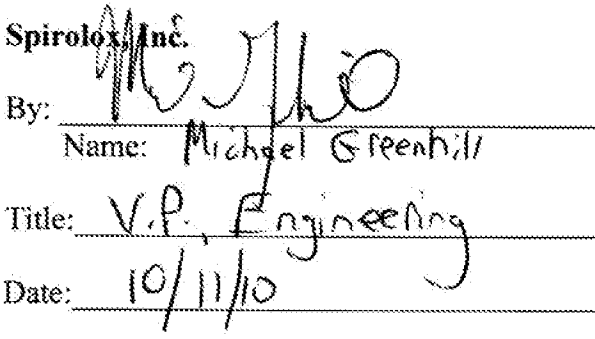 Spirolox, Inc.
By:
Name: Michael Greenhill
Title: V.P., Engineering
Date: 10/11/10